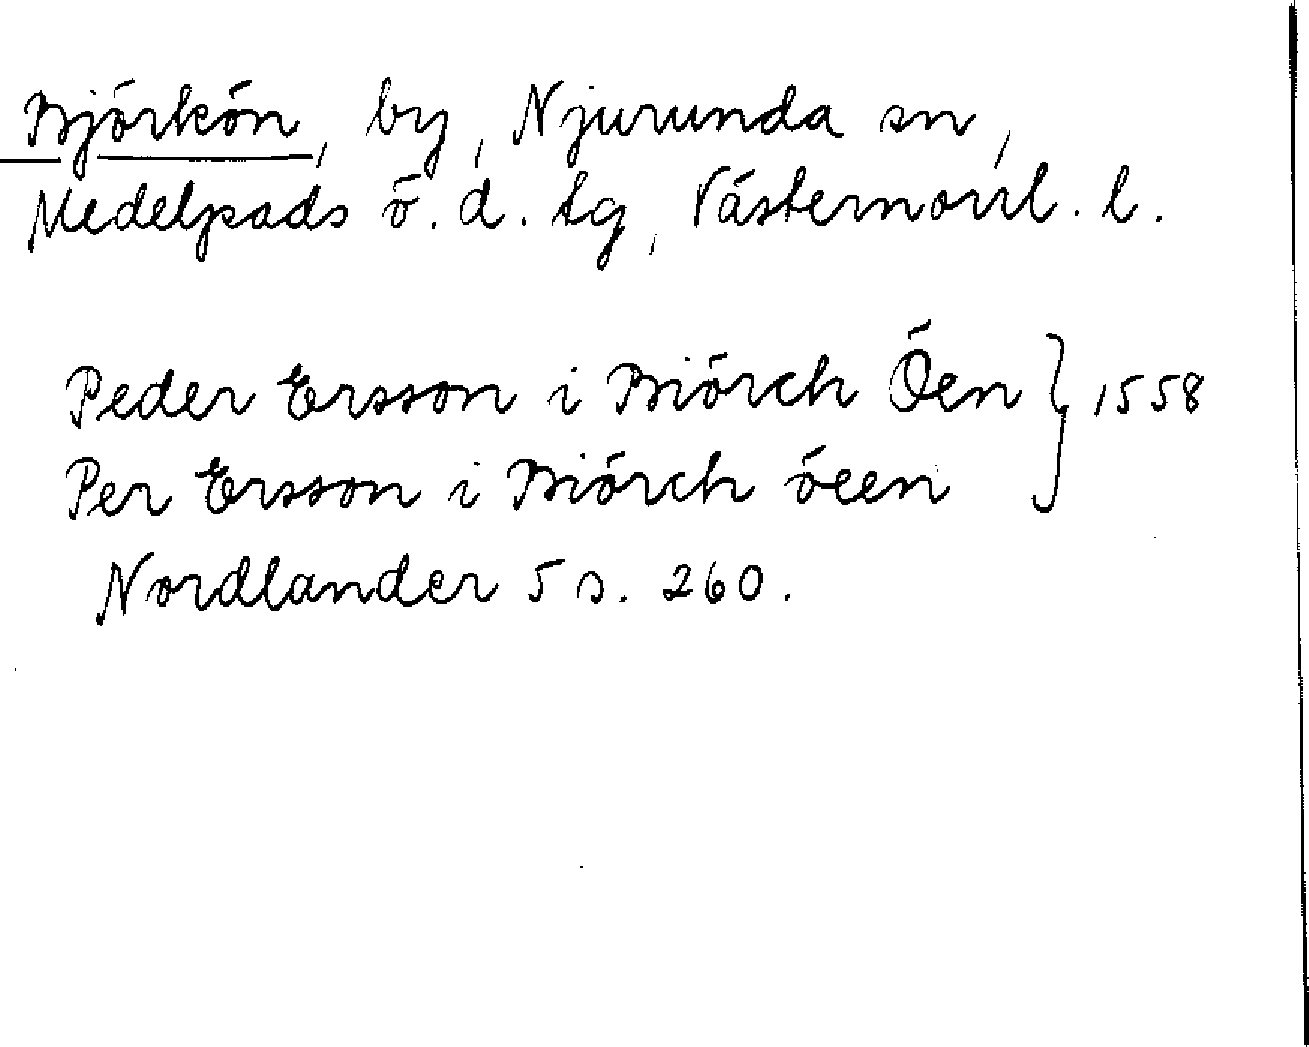 Björkön, by, Njurunda sn,
Medelpads ö. d. tg, Västernorrl. l.
Peder Ersson i Biörch Öen } 1558
Per Ersson i Biörch öeen
Nordlander 5 s. 260.